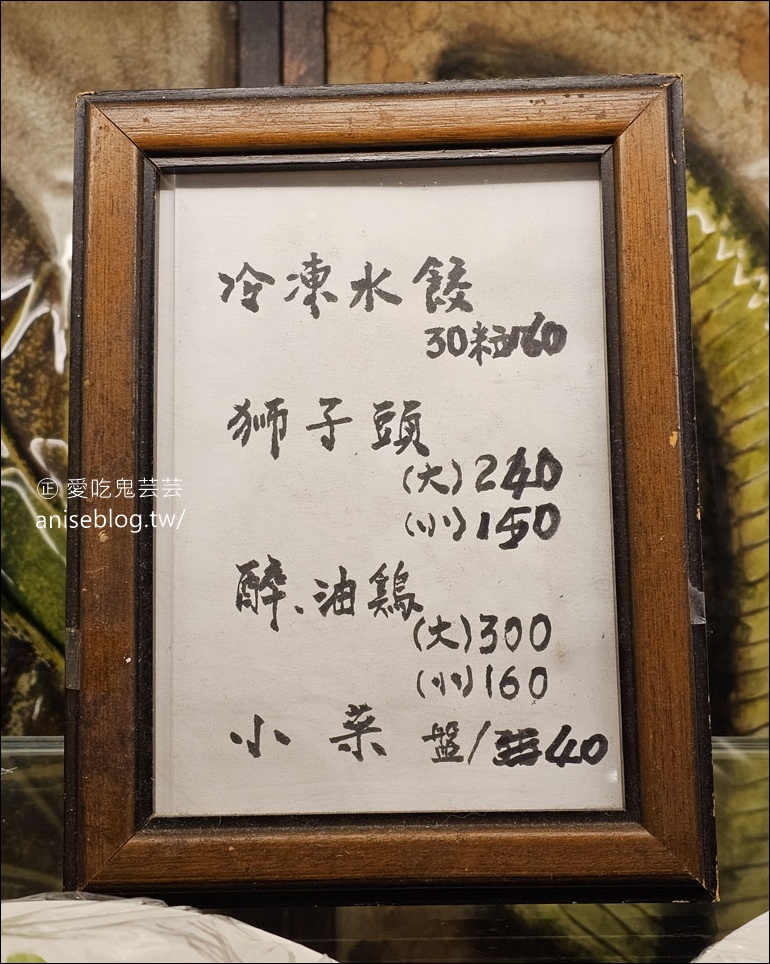 冷凍水餃
30粒160
狮子頭
(大)240
(小)150
醉、油鷄
(大)300
(小)160
小菜 盤/40
㊣ 愛吃鬼芸芸
aniseblog.tw/